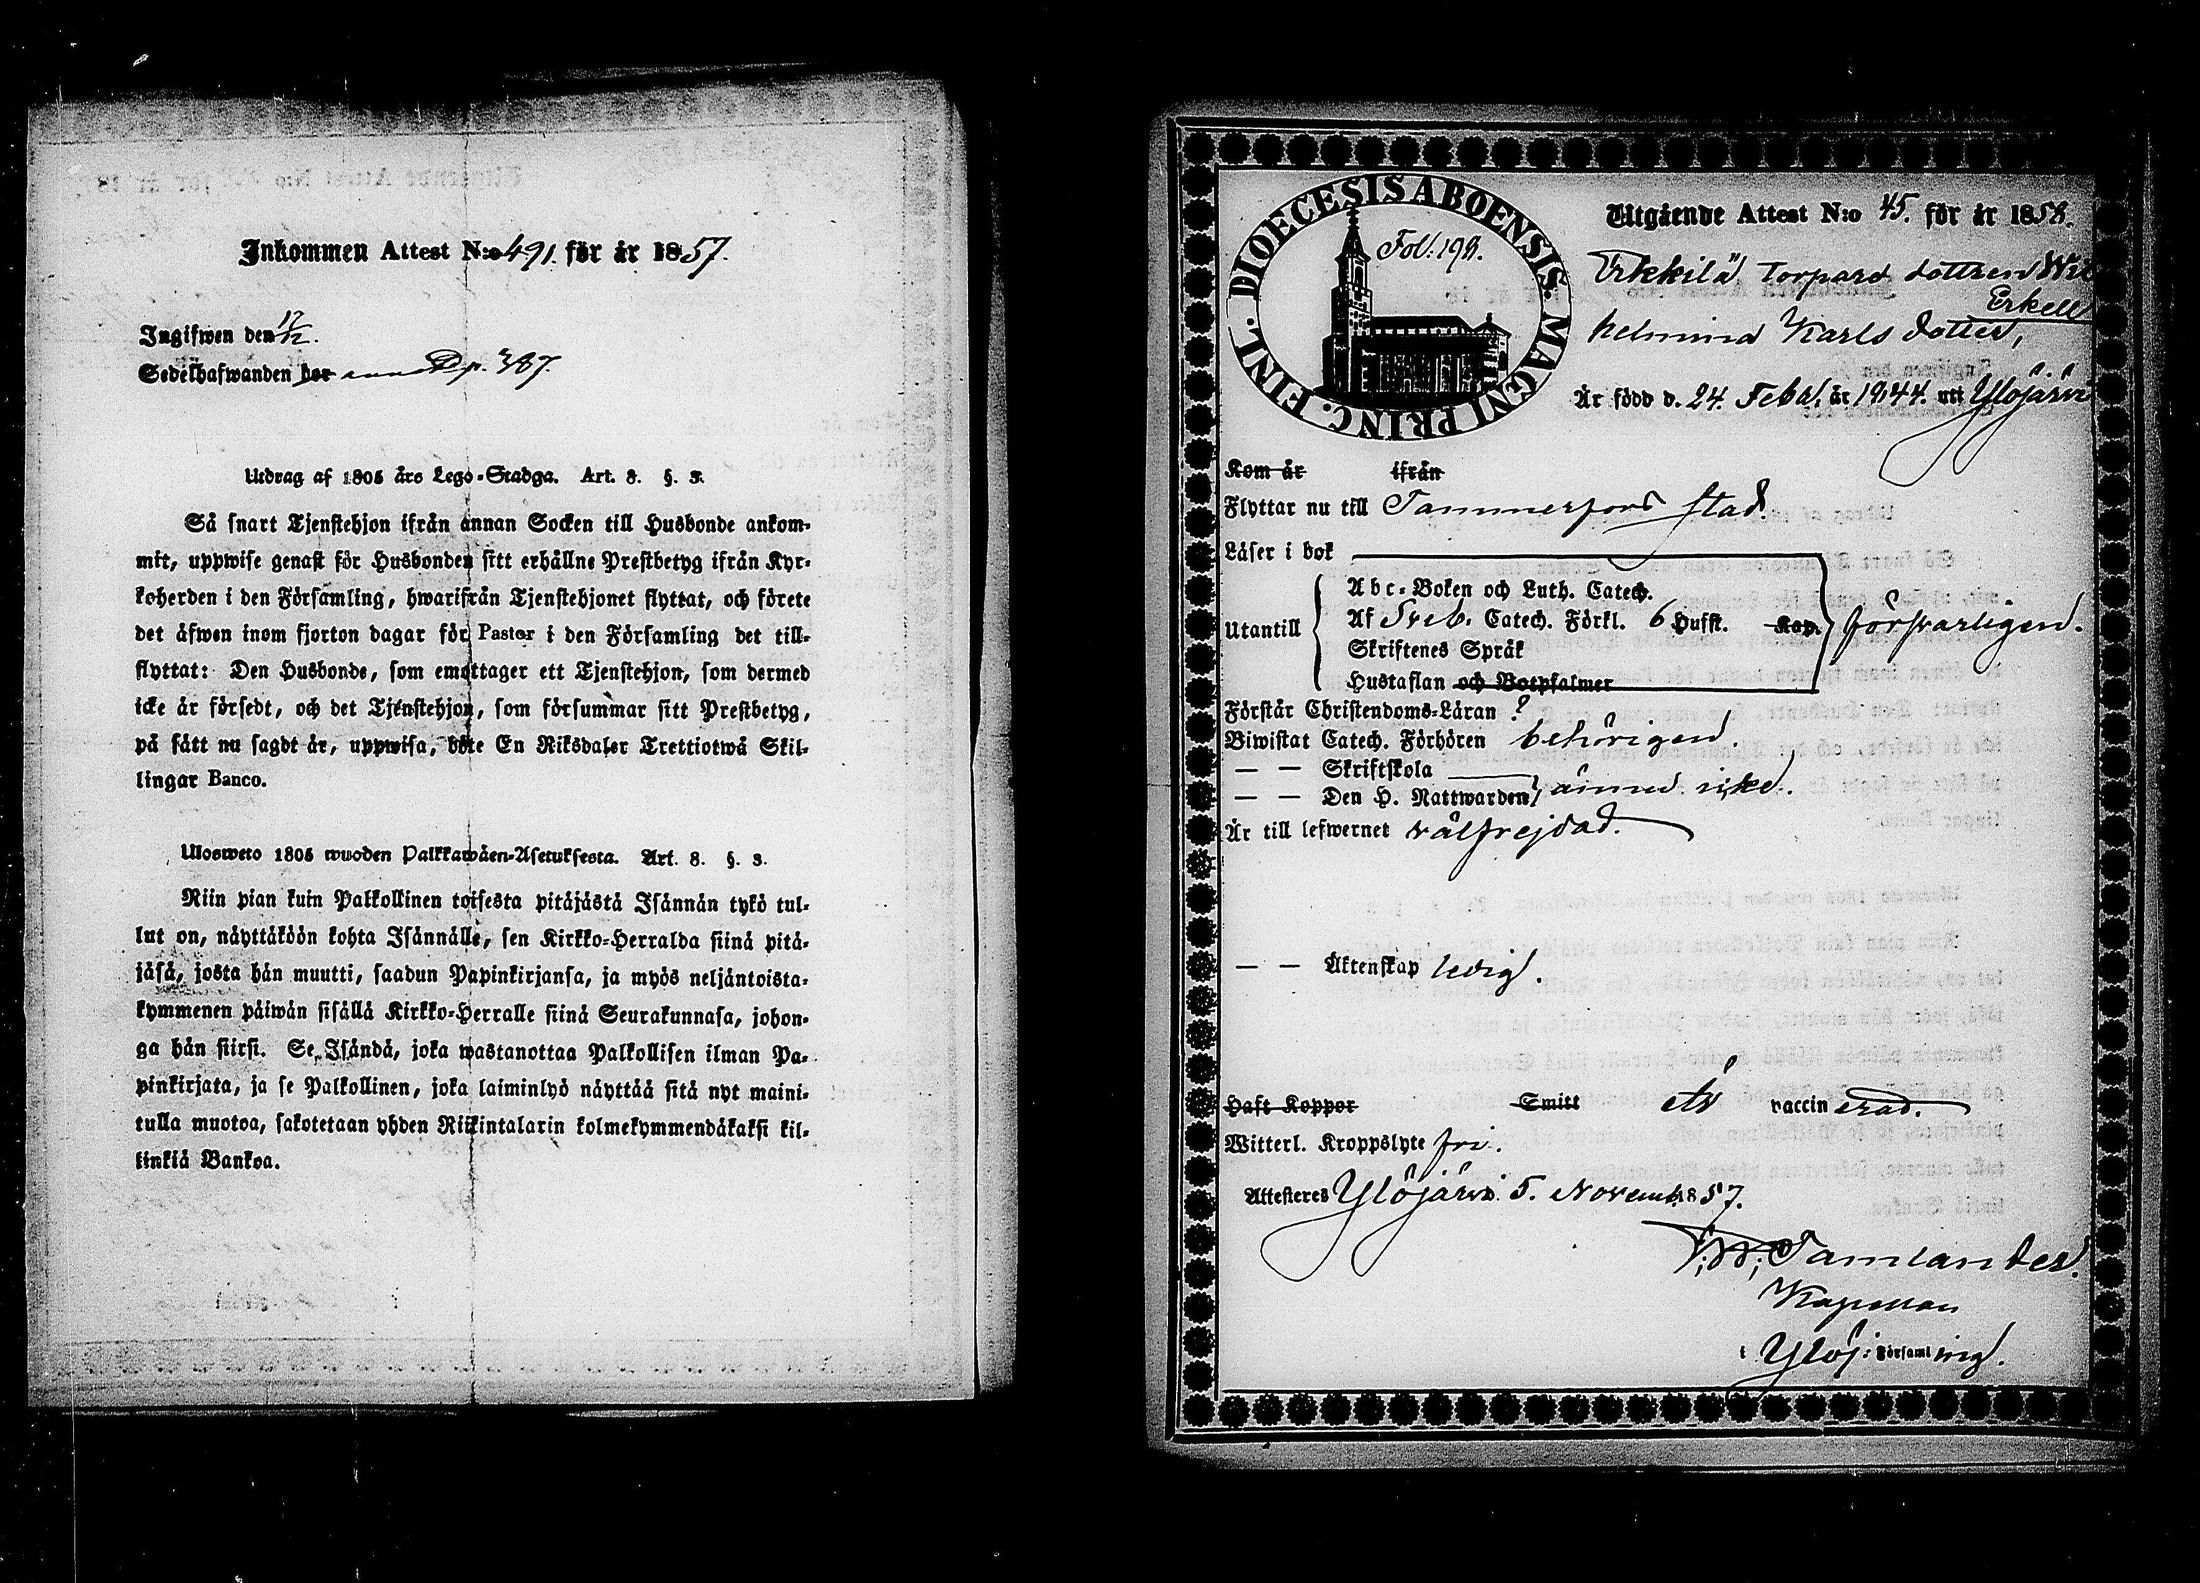 Inkommen Attest N:o 491. för år 1857.
Ingifwen den 17/12.
Sedelhafwanden bor p. 387.
Utdrag af 1805 års Lego-Stadga. Art. 8. §. 3.
Så snart Tjenstehjon ifrån annan Socken till Husbonde ankom-
mit, uppwise genast för Husbonden sitt erhållne Prestbetyg ifrån Kyr-
koherden i den Församling, hwarifrån Tjenstehjonet flyttat, och förete
det äfwen inom fjorton dagar för Pastor i den Församling det till-
flyttat: Den Husbonde, som emottager ett Tjenstehjon, som dermed
icke är försedt, och det Tjenstehjon, som försummar sitt Prestbetyg,
på sätt nu sagdt är, uppwisa, böte En Riksdaler Trettiotwå Skil-
lingar Banco.
Ulosweto 1805 wuoden Palkkawäen-Asetuksesta. Art. 8. §. 3.
Niin pian kuin Palkollinen toisesta pitäjästä Isännän tykö tul-
lut on, näyttäköön kohta Isännälle, sen Kirkko-Herralda siinä pitä-
jäsä, josta hän muutti, saadun Papinkirjansa, ja myös neljäntoista-
kymmenen päiwän sisällä Kirkko-Herralle siinä Seurakunnasa, johon-
ga hän siirsi. Se Isändä, joka wastanottaa Palkollisen ilman Pa-
pinkirjata, ja se Palkollinen, joka laiminlyö näyttää sitä nyt maini-
tulla muotoa, sakotetaan yhden Riikintalarin kolmekymmendäkaksi kil-
linkiä Bankoa.
DIOECESIS ABOENSIS. MAGNI PRINC. FINL.
Fol: 198.
Utgående Attest N:o 45. för år 1858.
Erkkilä Torpare dottren Wil
Erkell
helmina Karls dotter,
Är född d. 24. Febr. år 1844. uti Ylöjärvi
Kom år ifrån
Flyttar nu till Tammerfors stad.
Läser i bok
Utantill
Abc-Boken och Luth. Catech.
Af Sveb. Catech. Förkl. 6 Hufst. Kap.
Skriftenes Språk
Hustaflan och Botpsalmer
försvarligen.
Förstår Christendoms-Läran ?
Biwistat Catech. Förhören behörigen.
— — Skriftskola
— — Den H. Nattwarden ännu icke.
Är till lefwernet välfrejdad.
— — Äktenskap ledig.
Haft Koppor Smitt Är vaccinerad.
Witterl. Kroppslyte fri.
Attesteres Ylöjärvi 5. Novemb. 1857.
Tamlander.
Kapellan
i Ylöj: Församling.